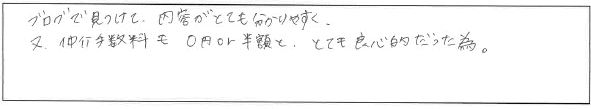 ブログで見つけて、内容がとても分かりやすく、
又、仲介手数料も 0円or半額と、とても良心的だった為。